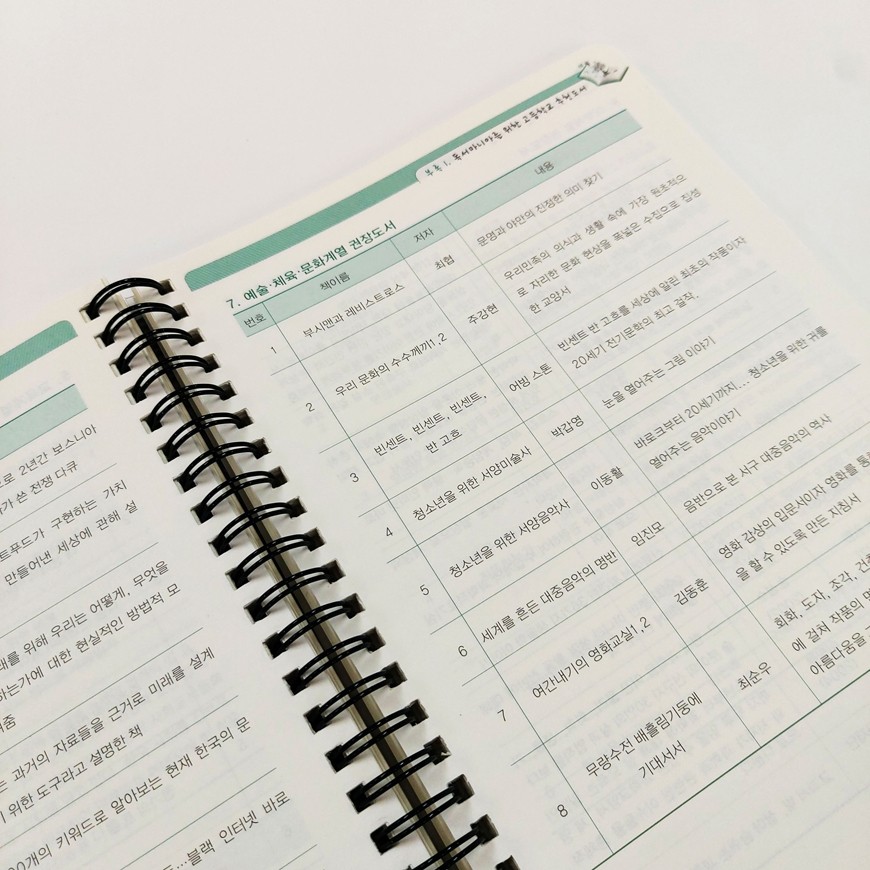 로 2년간 보스니아
가 쓴 전쟁 다큐
트푸드가 구현하는 가치
만들어낸 세상에 관해 설
래를 위해 우리는 어떻게, 무엇을
하는가에 대한 현실적인 방법적 모
여줌
는 과거의 자료들을 근거로 미래를 설계
기 위한 도구라고 설명한 책
00개의 키워드로 알아보는 현재 한국의 문
블랙 인터넷 바로
부록 1. 독서마니아를 위한 고등학교 추천도서
7. 예술·체육·문화계열 권장도서
번호 책이름 저자 내용
1 부시맨과 레비스트로스 최협 문명과 야만의 진정한 의미 찾기
2 우리 문화의 수수께끼1,2 주강현 우리민족의 의식과 생활 속에 가장 원초적으
로 자리한 문화 현상을 폭넓은 수집으로 집성
한 교양서
3 빈센트, 빈센트, 빈센트, 어빙 스톤 빈센트 반 고흐를 세상에 알린 최초의 작품이자
반 고흐 20세기 전기문학의 최고 걸작.
4 청소년을 위한 서양미술사 박갑영 눈을 열어주는 그림 이야기
5 청소년을 위한 서양음악사 이동활 바로크부터 20세기까지... 청소년을 위한 귀를
열어주는 음악이야기
6 세계를 흔든 대중음악의 명반 임진모 음반으로 본 서구 대중음악의 역사
7 여간내기의 영화교실1,2 김동훈 영화 감상의 입문서이자 영화를
을 할 수 있도록 만든 지침서
8 무량수전 배흘림기둥에 최순우 회화, 도자, 조각,
기대서서 에 걸쳐 작품의
아름다움을